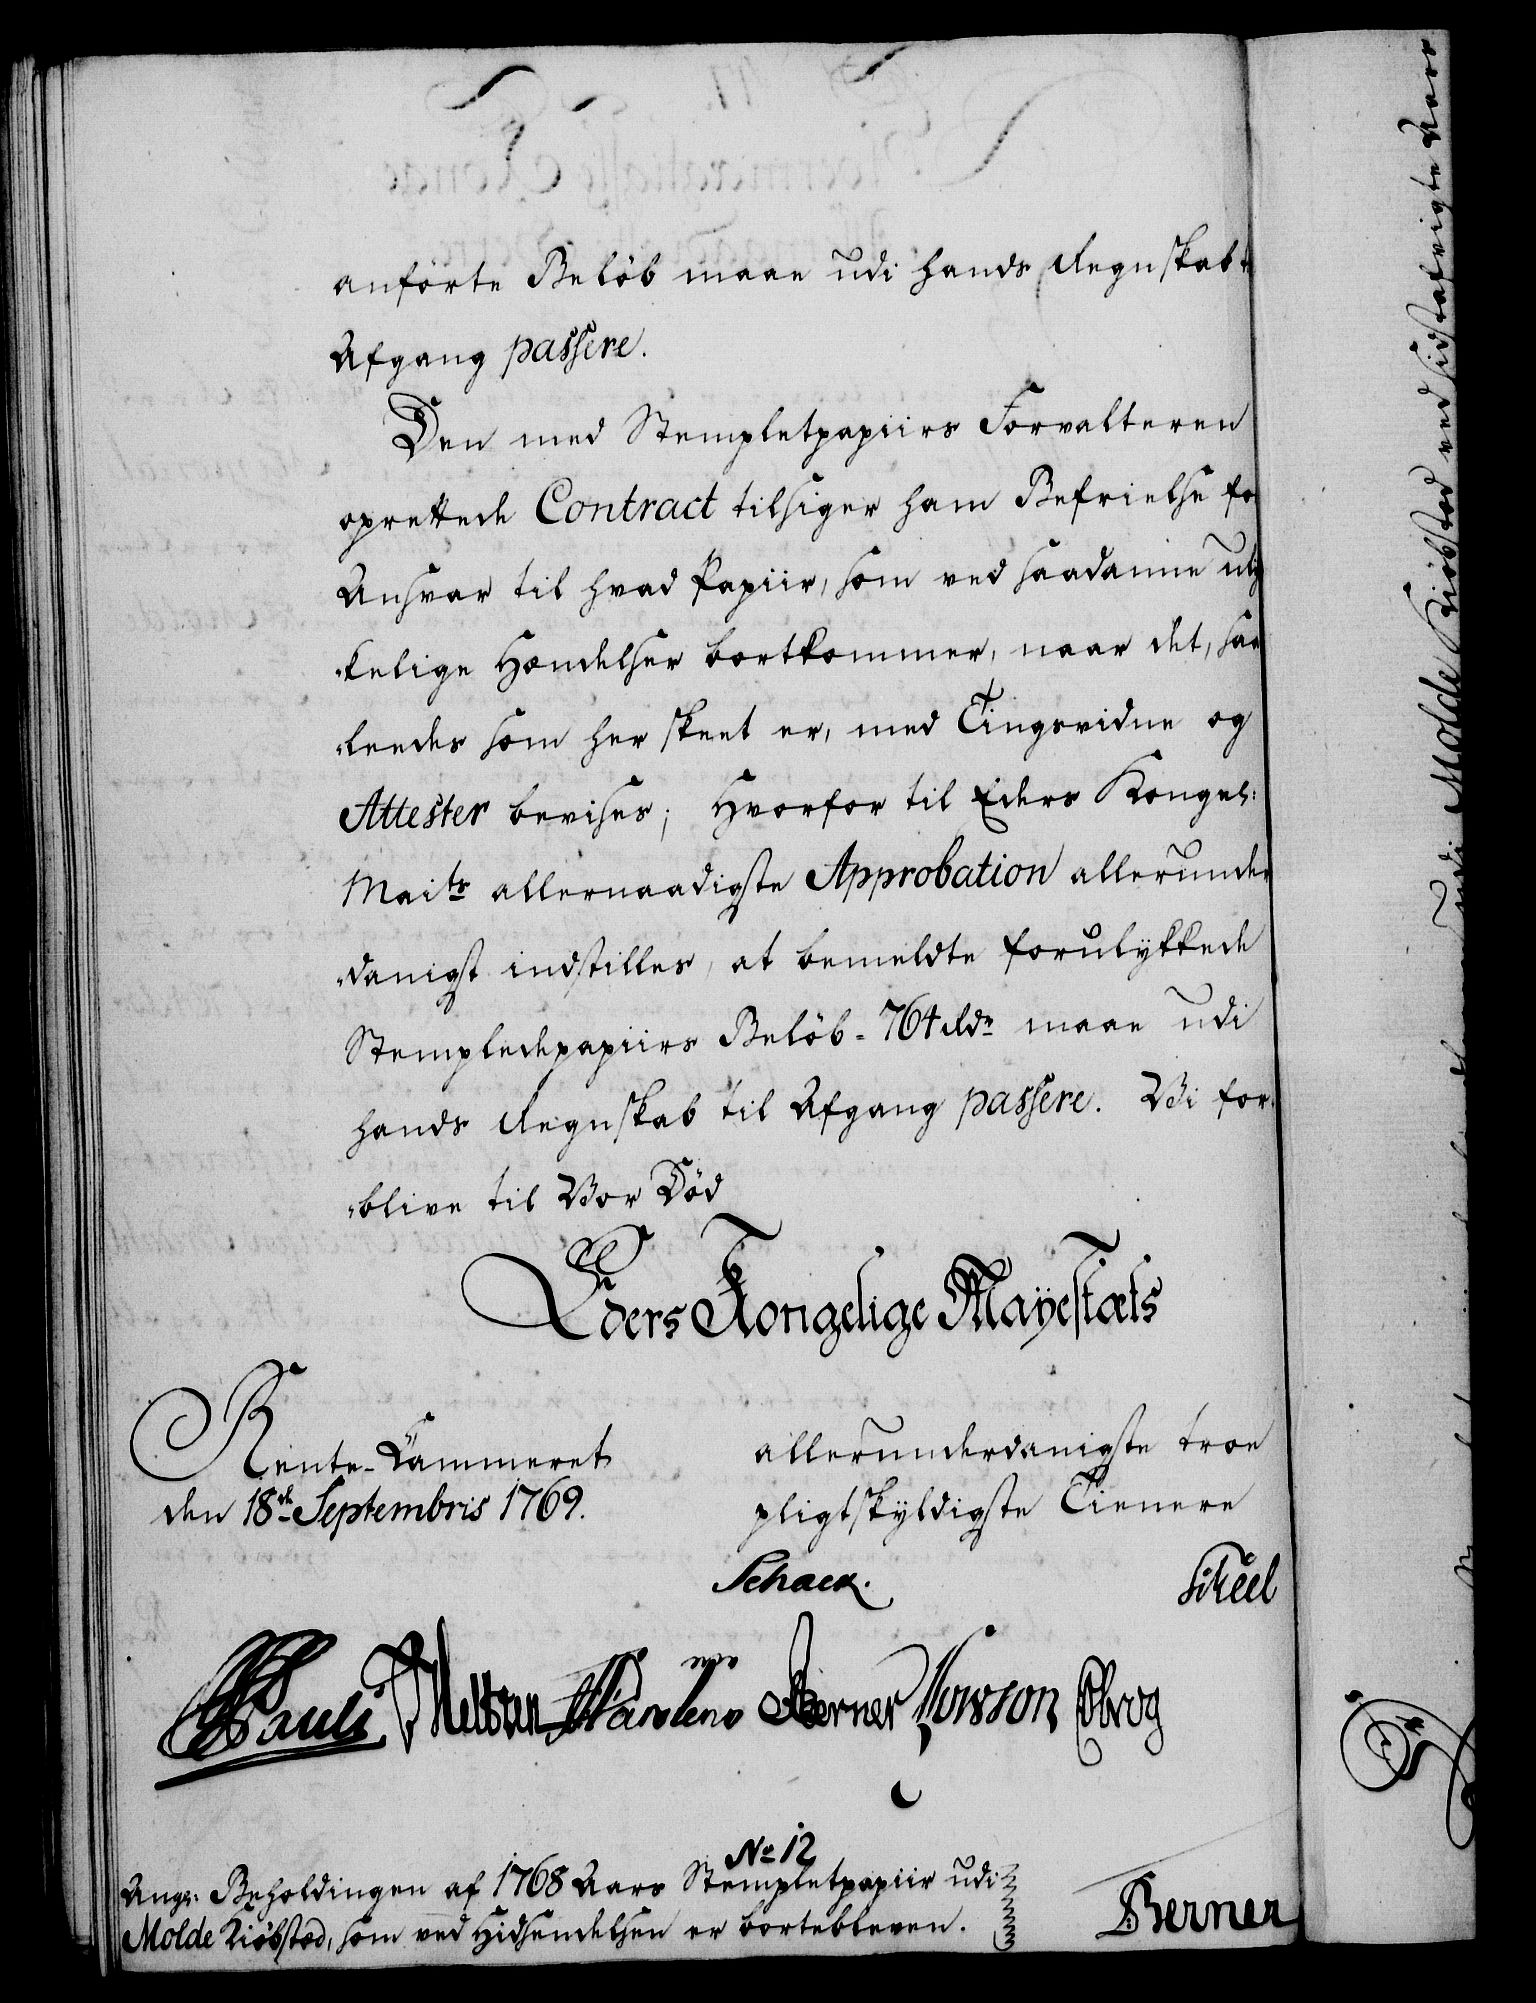 anförte Belöb maae udi hands Regnskab
Afgang passere.
Den med Stempletpapiirs Forvalteren
oprettede Contract tilsiger ham Befrielse for
Ansvar til hvad Papiir, som ved saadanne ulyk
kelige Hændelser bortkommer, naar det, saa
leedes som her skeet er, med Tingsvidne og
Attester bevises; Hvorfor til Eders Kongel:
Maits allernaadigste Approbation allerunder
danigst indstilles, at bemeldte forulykkede
Stempledepapiirs Belöb - 764 Rdr maae udi
hands Regnskab til Afgang passere. Vi for
blive til Vor Död
Eders Kongelige Mayestæts
Rente-Kammeret
den 18de Septembris 1769.
allerunderdanigste troe
pligtskyldigste Tienere
Schack. Scheel
Pauli Berner Cbrog
No 12
Angr: Beholdingen af 1768 Aars Stempletpapiir udi
Molde Kiöbstæd, som ved Hidsendelsen er bortebleven.
Berner
udi Molde Kiöbstæd ved sidstafvigte Aars